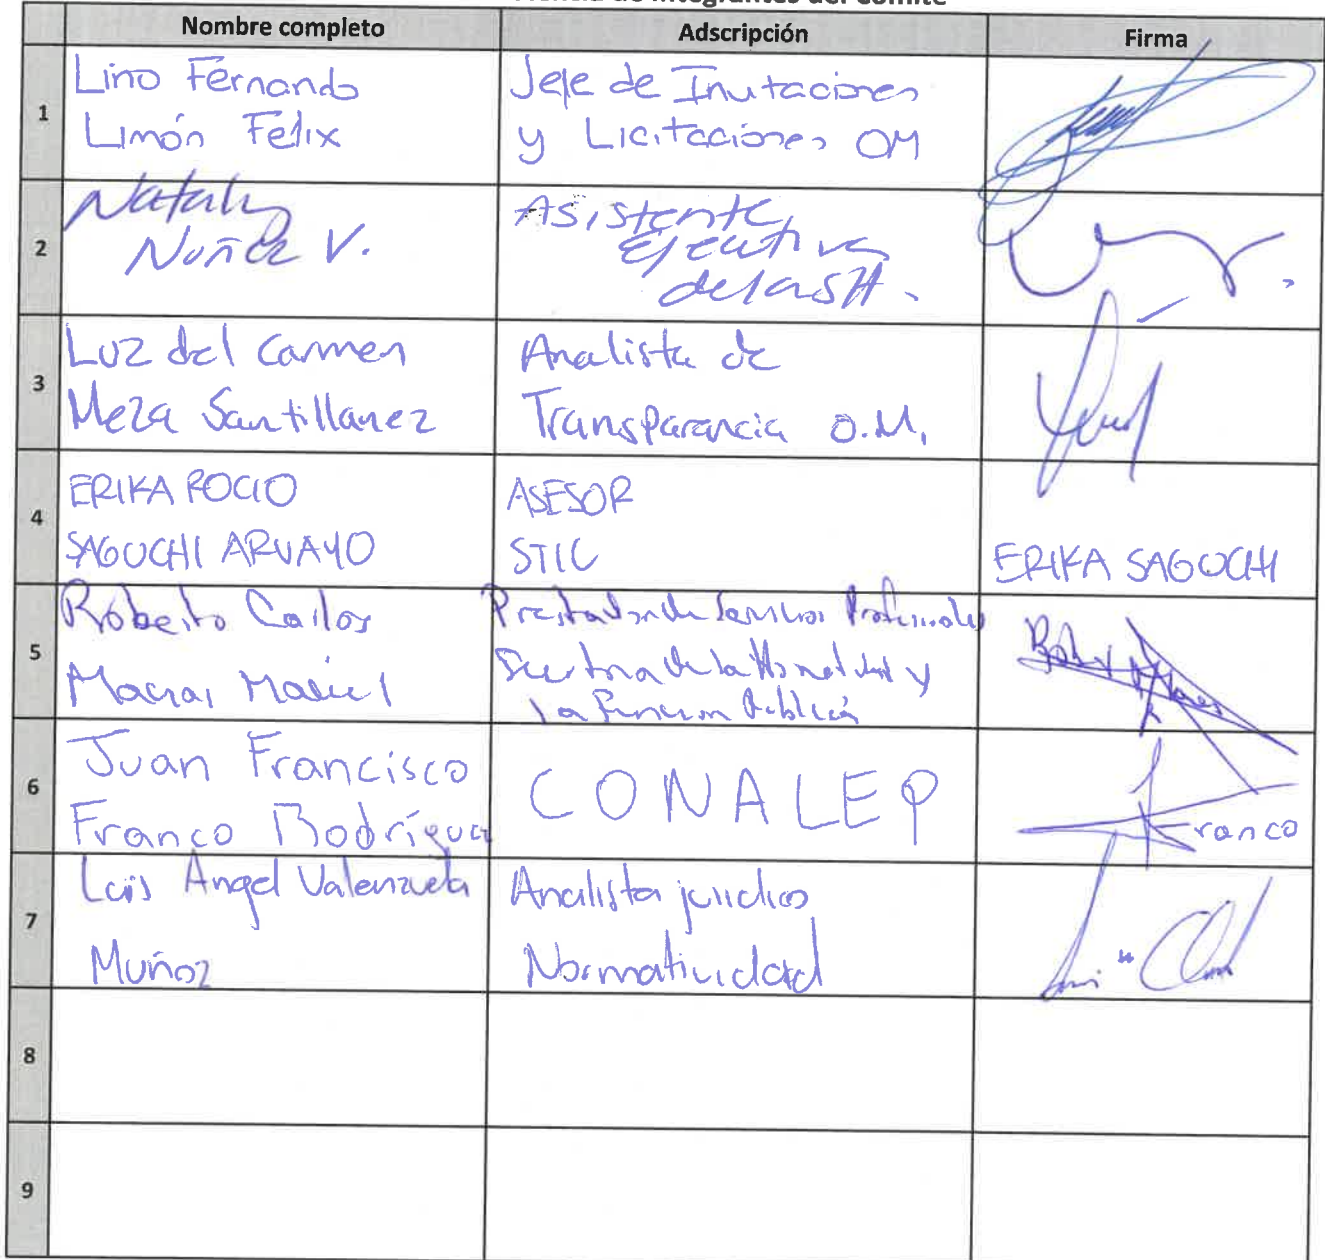 de Integrantes del Comité
Nombre completo
Adscripción
Firma
1
Lino Fernando
Limón Felix
Jefe de Invitaciones
y Licitaciones OM
2
Nataly
Nuñez V.
Asistente
Ejecutiva
de la SH.
3
Luz del Carmen
Meza Santillanez
Analista de
Transparencia O.M.
4
ERIKA ROCIO
SAGUCHI ARVAYO
ASESOR
STIC
ERIKA SAGUCHI
5
Roberto Carlos
Macias Maciel
Prestador de Servicios Profesionales
de la Honestidad y
la Función Pública
6
Juan Francisco
Franco Rodríguez
CONALEP
Franco
7
Luis Angel Valenzuela
Muñoz
Analista jurídico
Normatividad
8
9